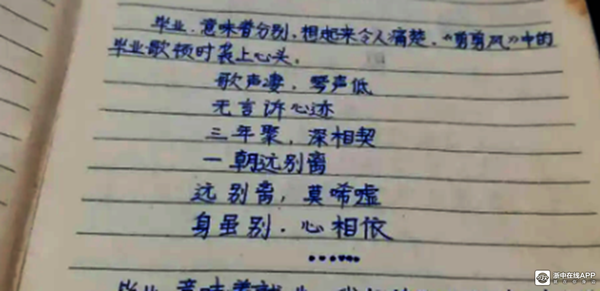 毕业，意味着分别，想起来令人痛楚，《剪剪风》中的
毕业歌顿时袭上心头。
歌声凄，琴声低
无言诉心迹
三年聚，深相契
一朝远别离
远别离，莫唏嘘
身虽别，心相依
……
毕业，意味着
新中在线APP